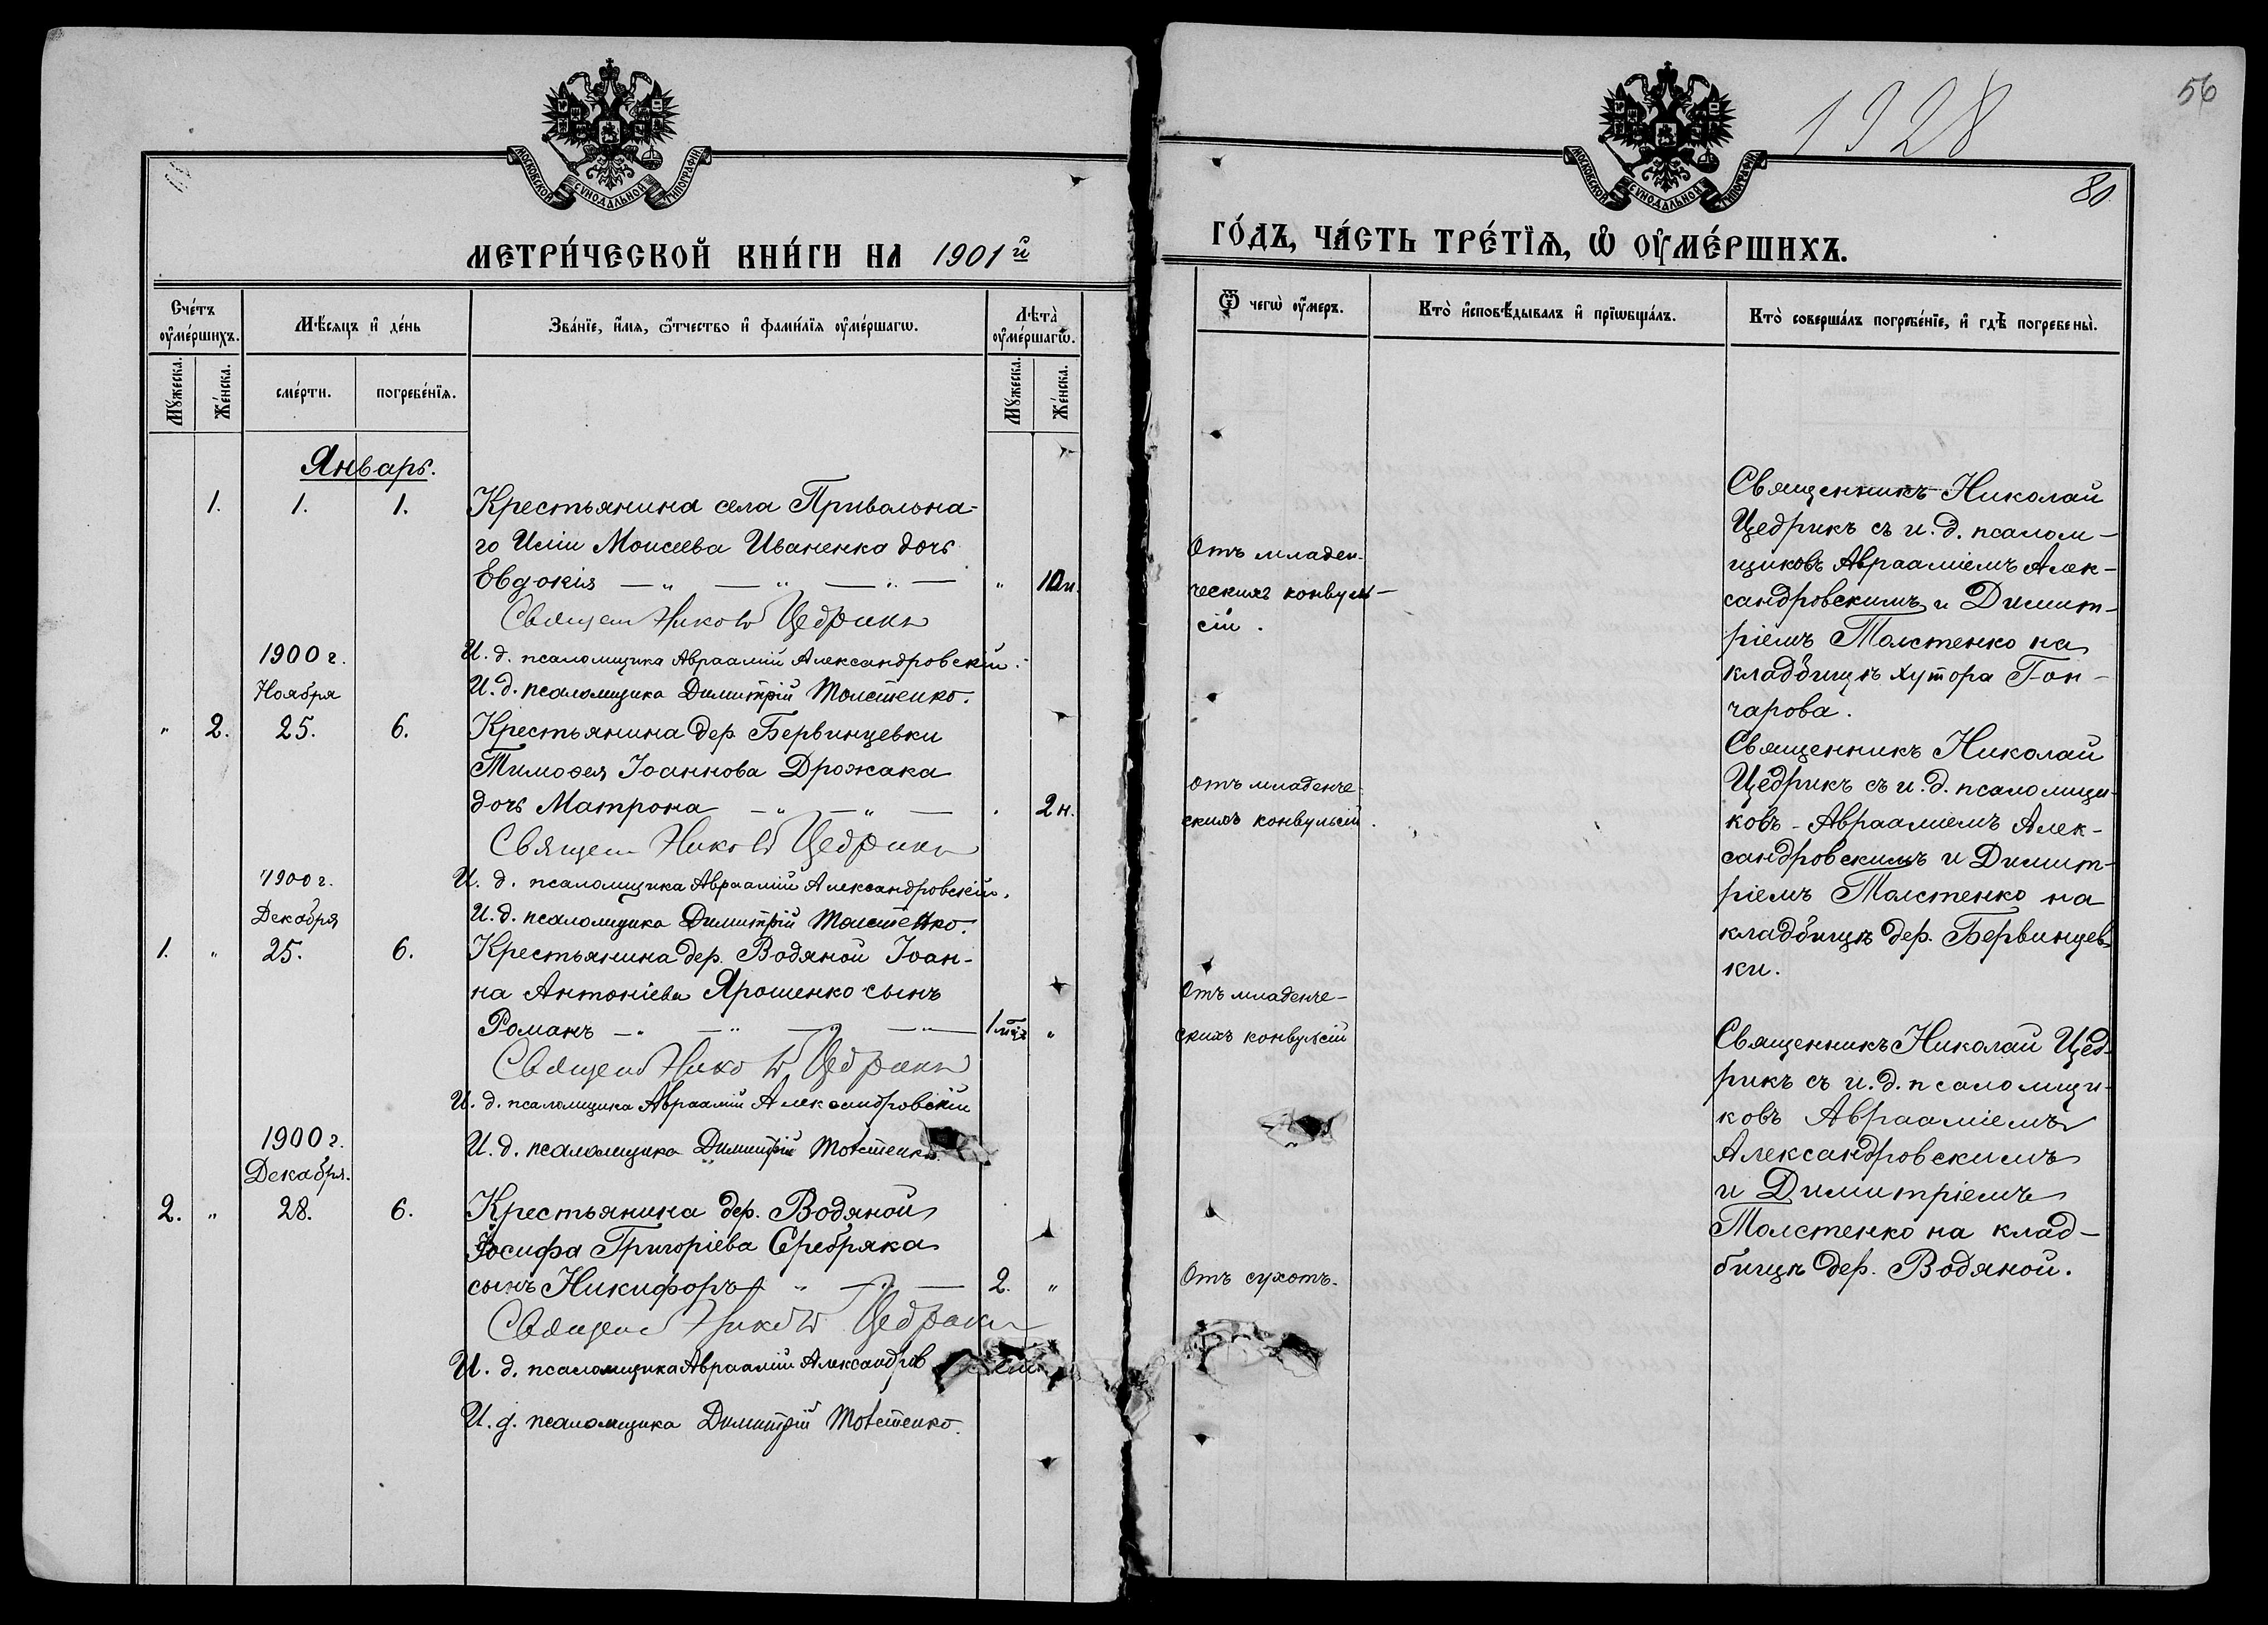 1928
56
МОСКОВСКОЙ СѴНОДАЛЬНОЙ ТИПОГРАФІИ
МОСКОВСКОЙ СѴНОДАЛЬНОЙ ТИПОГРАФІИ
80
МЕТРИ́ЧЕСКОЙ КНИ́ГИ НА 1901й
ГО́ДЪ, ЧА́СТЬ ТРЕ́ТЇѦ, Ѡ҆ ОУ҆МЕ́РШИХЪ.
Сче́тъ оу҆ме́ршихъ.
Мѣ́сяцъ и҆ де́нь
Зва́нїе, и҆́мя, ѻ҆́тчество и҆ фами́лїя оу҆ме́ршагѡ.
Лѣта̀ оу҆ме́ршагѡ.
Ѿ чегѡ̀ оу҆́меръ.
Кто̀ и҆сповѣ́дывалъ и҆ прїѡбща́лъ.
Кто̀ соверша́лъ погребе́нїе, и҆ гдѣ̀ погребены̀.
Мꙋ́жеска.
Же́нска.
сме́рти.
погребе́нїя.
Мꙋ́жеска.
Же́нска.
Январь.
1. 1. 1. Крестьянина села Привольна-
го Иліи Моисеева Иваненка дочь
Евдокія — „ — „ — „ — „ 10н.
Священ Никол Цедрикъ
И. д. псаломщика Авраамій Александровскій.
И. д. псаломщика Димитрій Толстенко.
Отъ младен-
ческихъ конвуль-
сій.
Священникъ Николай
Цедрикъ съ и. д. псалом-
щиковъ Аврааміемъ Алек-
сандровскимъ и Димит-
ріемъ Толстенко на
кладбищѣ хутора Гон-
чарова.
1900 г.
Ноября
„ 2. 25. 6. Крестьянина дер. Бервинцевки
Тимоѳея Іоаннова Дрожака
дочь Матрона — „ — „ — 2 н.
Священ Никол Цедрикъ
И. д. псаломщика Авраамій Александровскій.
И. д. псаломщика Димитрій Толстенко.
отъ младенче-
скихъ конвульсій.
Священникъ Николай
Цедрикъ съ и. д. псаломщи-
ковъ - Аврааміемъ Алек-
сандровскимъ и Димит-
ріемъ Толстенко на
кладбищѣ дер. Бервинцев-
ки.
1900 г.
Декабря
1. „ 25. 6. Крестьянина дер. Водяной Іоан-
на Антоніева Ярошенко сынъ
Романъ — „ — „ — „ — „ — 1 мѣс. „
Священ Никол Цедрикъ
И. д. псаломщика Авраамій Александровскій
И. д. псаломщика Димитрій Толстенко.
Отъ младенче-
скихъ конвульсій
Священникъ Николай Цед-
рикъ съ и. д. псаломщи-
ковъ Аврааміемъ
Александровскимъ
и Димитріемъ
Толстенко на клад-
бищѣ дер. Водяной.
1900 г.
Декабря.
2. „ 28. 6. Крестьянина дер. Водяной
Іосифа Григоріева Серебряка
сынъ Никифоръ „ — „ — 2. „
Священ Никол Цедрикъ
И. д. псаломщика Авраамій Александров
И. д. псаломщика Димитрій Толстенко.
Отъ сухотъ.